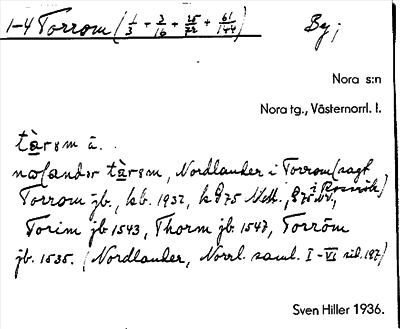 1-4 Torrom (1/3 + 3/16 + 25/72 + 61/144) By;
Nora s:n
Nora tg., Västernorrl. l.
tàrəm ä.
Nordlander tàrəm, Nordlander i Torrom (sagt
Torrom jb., kb. 1932, k
Torim jb 1543, Thorm jb. 1547, Torröm
jb. 1535. (Nordlander, Norrl. saml. I-VI sid. 197)
Sven Hiller 1936.